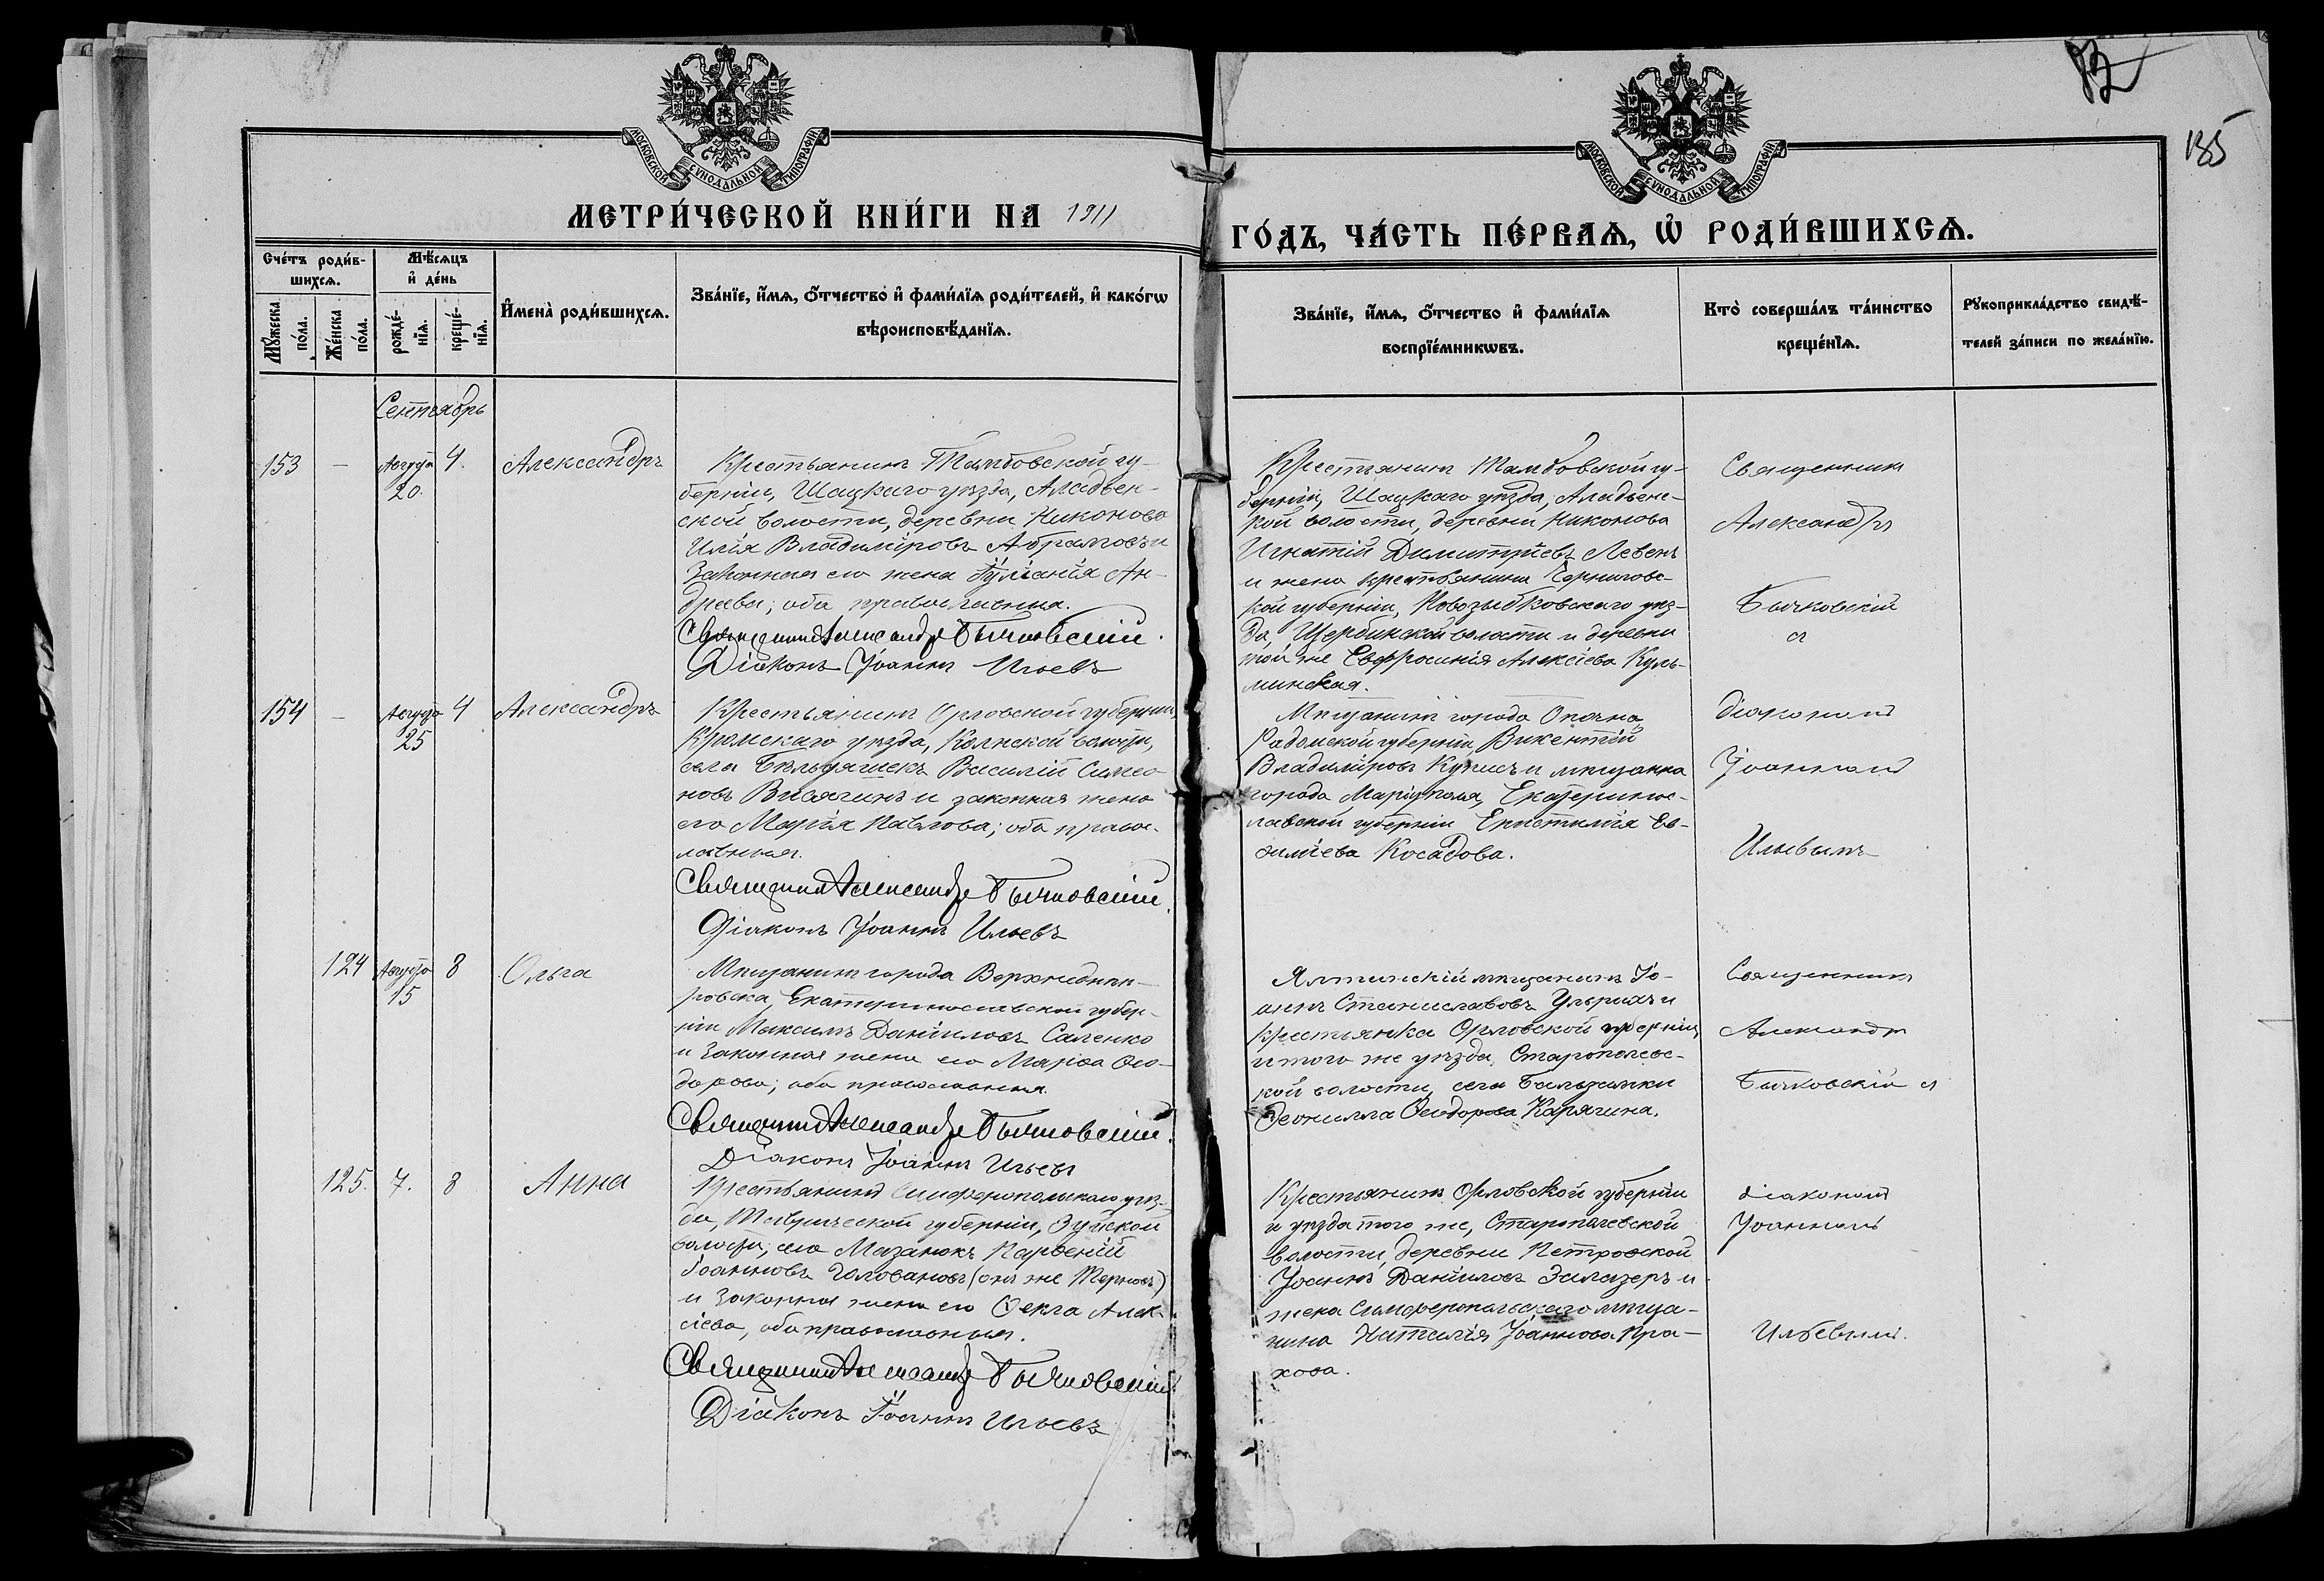 82
135
МОСКОВСКОЙ СѴНОДАЛЬНОЙ ТИПОГРАФІИ
МОСКОВСКОЙ СѴНОДАЛЬНОЙ ТИПОГРАФІИ
МЕТРИ́ЧЕСКОЙ КНИ́ГИ НА 1911
ГО́ДЪ, ЧА́СТЬ ПЕ́РВАѦ, Ѡ҆ РОДИ́ВШИХСѦ.
Сче́тъ роди́в-
шихсѧ.
Мꙋ́жеска по́ла.
Же́нска по́ла.
Мѣ́сѧцъ
и҆ де́нь
рожде́-нїѧ.
креще́-нїѧ.
И҆мена̀ роди́вшихсѧ.
Зва́нїе, и҆́мѧ, ѻ҆́тчество и҆ фами́лїѧ роди́телей, и҆ како́гѡ
вѣроисповѣ́данїѧ.
Зва́нїе, и҆́мѧ, ѻ҆́тчество и҆ фами́лїѧ
воспрїе́мникѡвъ.
Кто̀ соверша́лъ та́инство
креще́нїѧ.
Рꙋкоприкла́дство свидѣ́-
телей за́писи по жела́нїю.
Сентябрь
153 — Августа 20. 4. Александръ
Крестьянинъ Тамбовской гу-
берніи, Шацкаго уѣзда, Аладьен-
ской волости, деревни Никоново
Илія Владиміровъ Абрамовъ и
законная его жена Іуліанія Ан-
дреева; оба православные.
Священникъ Александръ Бычковскій.
Діаконъ Іоаннъ Ильевъ
Крестьянинъ Тамбовской гу-
берніи, Шацкаго уѣзда, Аладьенс-
кой волости, деревни Никонова
Игнатій Димитріевъ Левенъ
и жена крестьянина Чернигове-
кой губерніи, Новозыбковскаго уѣз-
да Щербинской волости и деревни
той же Евфросинія Алексіева Куль-
минская.
Священникъ
Александръ
Бычковскій
съ
154 — Августа 25 4 Александръ
Крестьянинъ Орловской губерніи,
Кромскаго уѣзда, Колкской волости,
села Бѣльдяшекъ Василій Симео-
новъ Висягинъ и законная жена
его Марія Павлова; оба правос-
лавные.
Священникъ Александръ Бычковскій.
Діаконъ Іоаннъ Ильевъ
Мѣщанинъ города Опочна,
Радомской губерніи, Викентій
Владиміровъ Купись и мѣщанка
города Маріуполя, Екатеринос-
лавской губерніи Епистимія Ев-
фиміева Косадова.
діакономъ
Іоанномъ
Ильевымъ
124 Августа 15 8 Ольга
Мѣщанинъ города Верхнеднѣп-
ровска, Екатеринославской губер-
ніи Максимъ Даніиловъ Саленко
и законная жена его Марѳа Ѳео-
дорова; оба православные.
Священникъ Александръ Бычковскій.
Діаконъ Іоаннъ Ильевъ
Ялтинскій мѣщанинъ Іо-
аннъ Станиславовъ Ульрихъ и
крестьянка Орловской губерніи,
и того же уѣзда, Старополевс-
кой волости, села Бакланки
Леонилла Ѳеодорова Карягина.
Священникъ
Александръ
Бычковскій съ
125. 7. 8 Анна
Крестьянинъ Симферопольскаго уѣз-
да, Таврической губерніи, Зуйской
волости, села Мазанокъ Парѳеній
Іоанновъ Головановъ (онъ же Терновъ)
и законная жена его Ѳекла Алек-
сіева, оба православные.
Священникъ Александръ Бычковскій.
Діаконъ Іоаннъ Ильевъ
Крестьянинъ Орловской губерніи
и уѣзда того же, Старополевской
волости, деревни Петровской
Іоаннъ Даніиловъ Элизеръ и
жена Симферопольскаго мѣща-
нина Наталія Іоаннова Пра-
хова.
діакономъ
Іоанномъ
Ильевымъ.